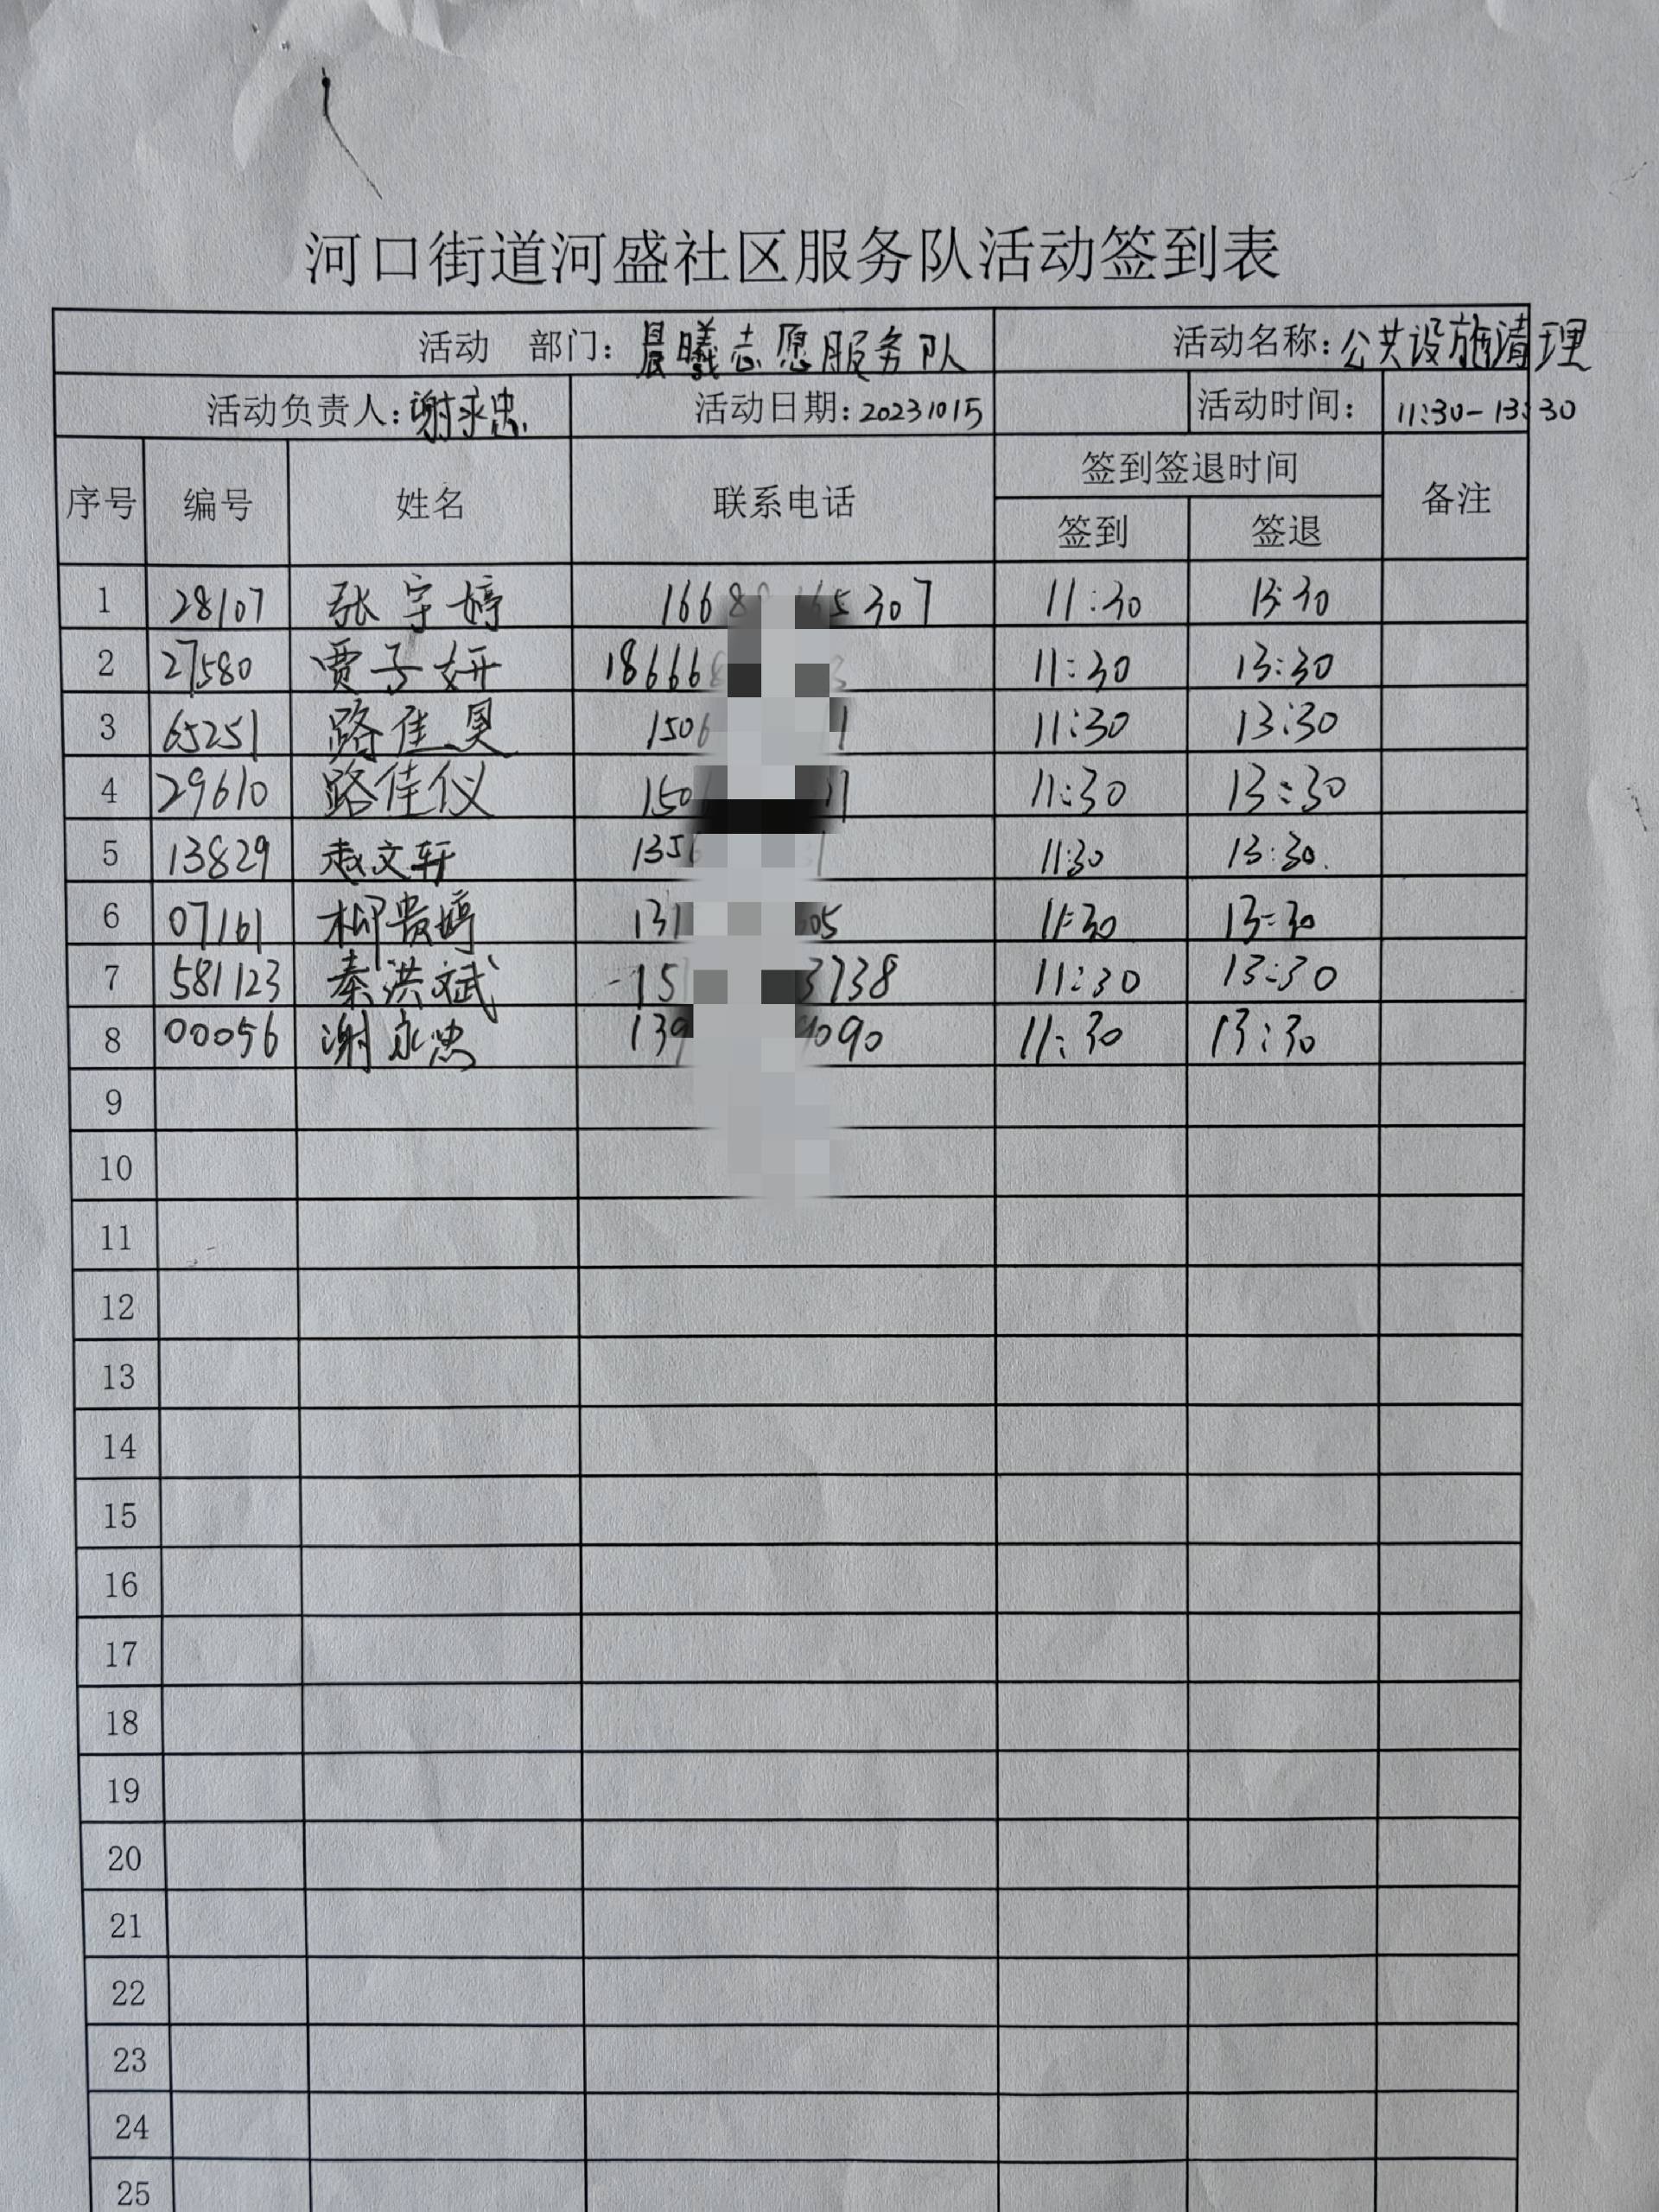 河口街道河盛社区服务队活动签到表
活动 部门: 晨曦志愿服务队 活动名称: 公共设施清理
活动负责人: 谢永忠 活动日期: 20231015 活动时间: 11:30-13:30
序号 编号 姓名 联系电话 签到签退时间 备注
签到 签退
1 28107 张宇婷 11:30 13:30
2 27580 贾子妍 11:30 13:30
3 65251 路佳昊 11:30 13:30
4 29610 路佳仪 11:30 13:30
5 13829 赵文轩 11:30 13:30
6 07161 柳贵婷 11:30 13:30
7 581123 秦洪斌 11:30 13:30
8 00056 谢永忠 11:30 13:30
9
10
11
12
13
14
15
16
17
18
19
20
21
22
23
24
25